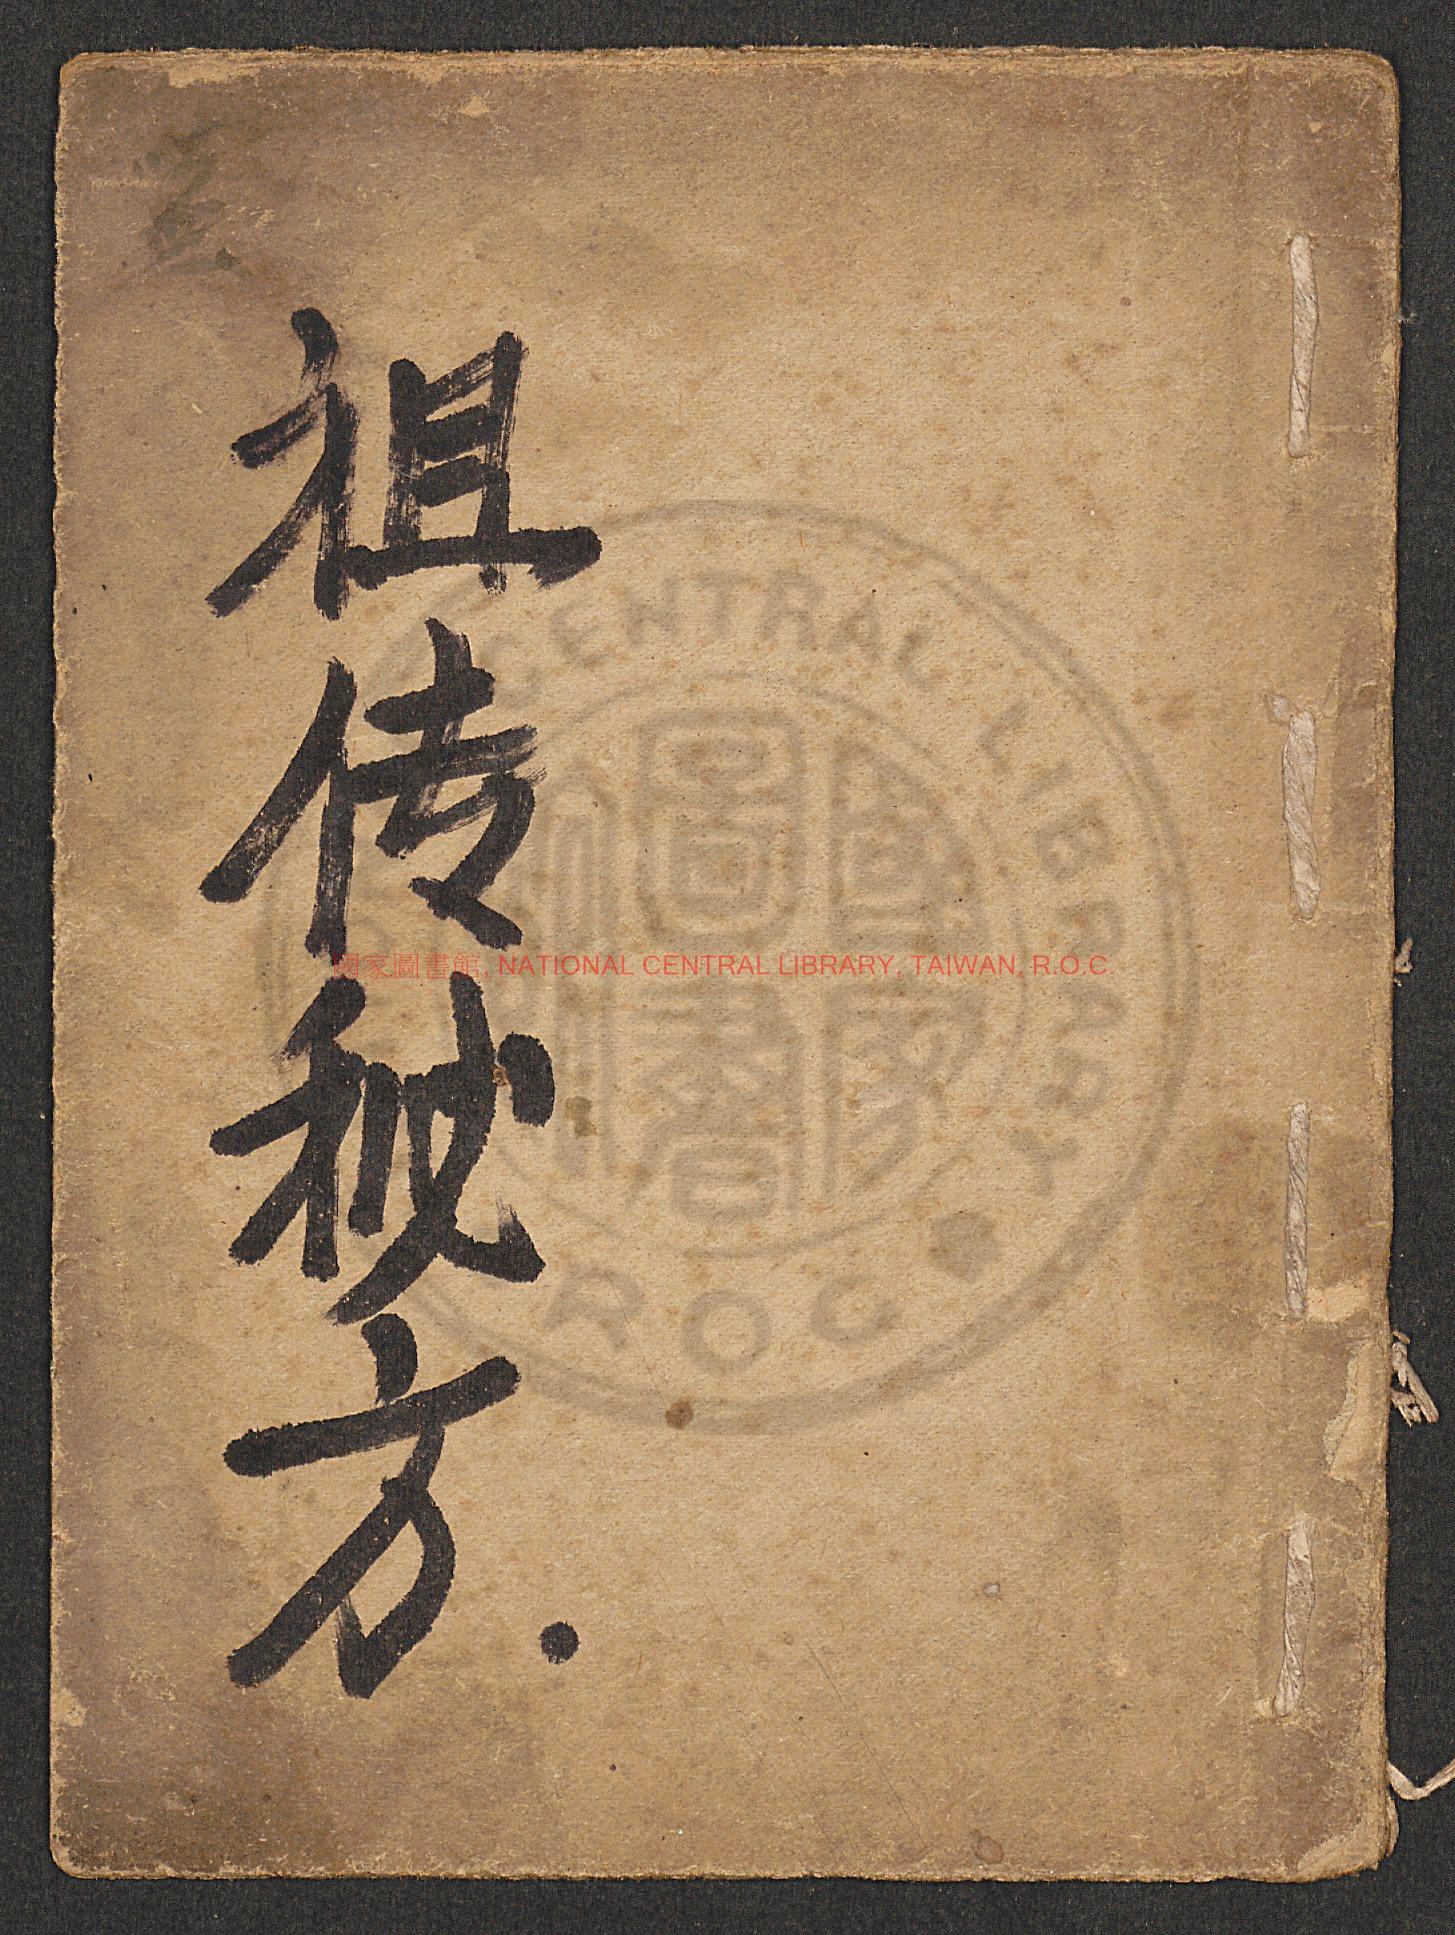 祖传秘方.
國家圖書館, NATIONAL CENTRAL LIBRARY, TAIWAN, R.O.C.
CENTRAL LIBRARY
R O C
國家圖書